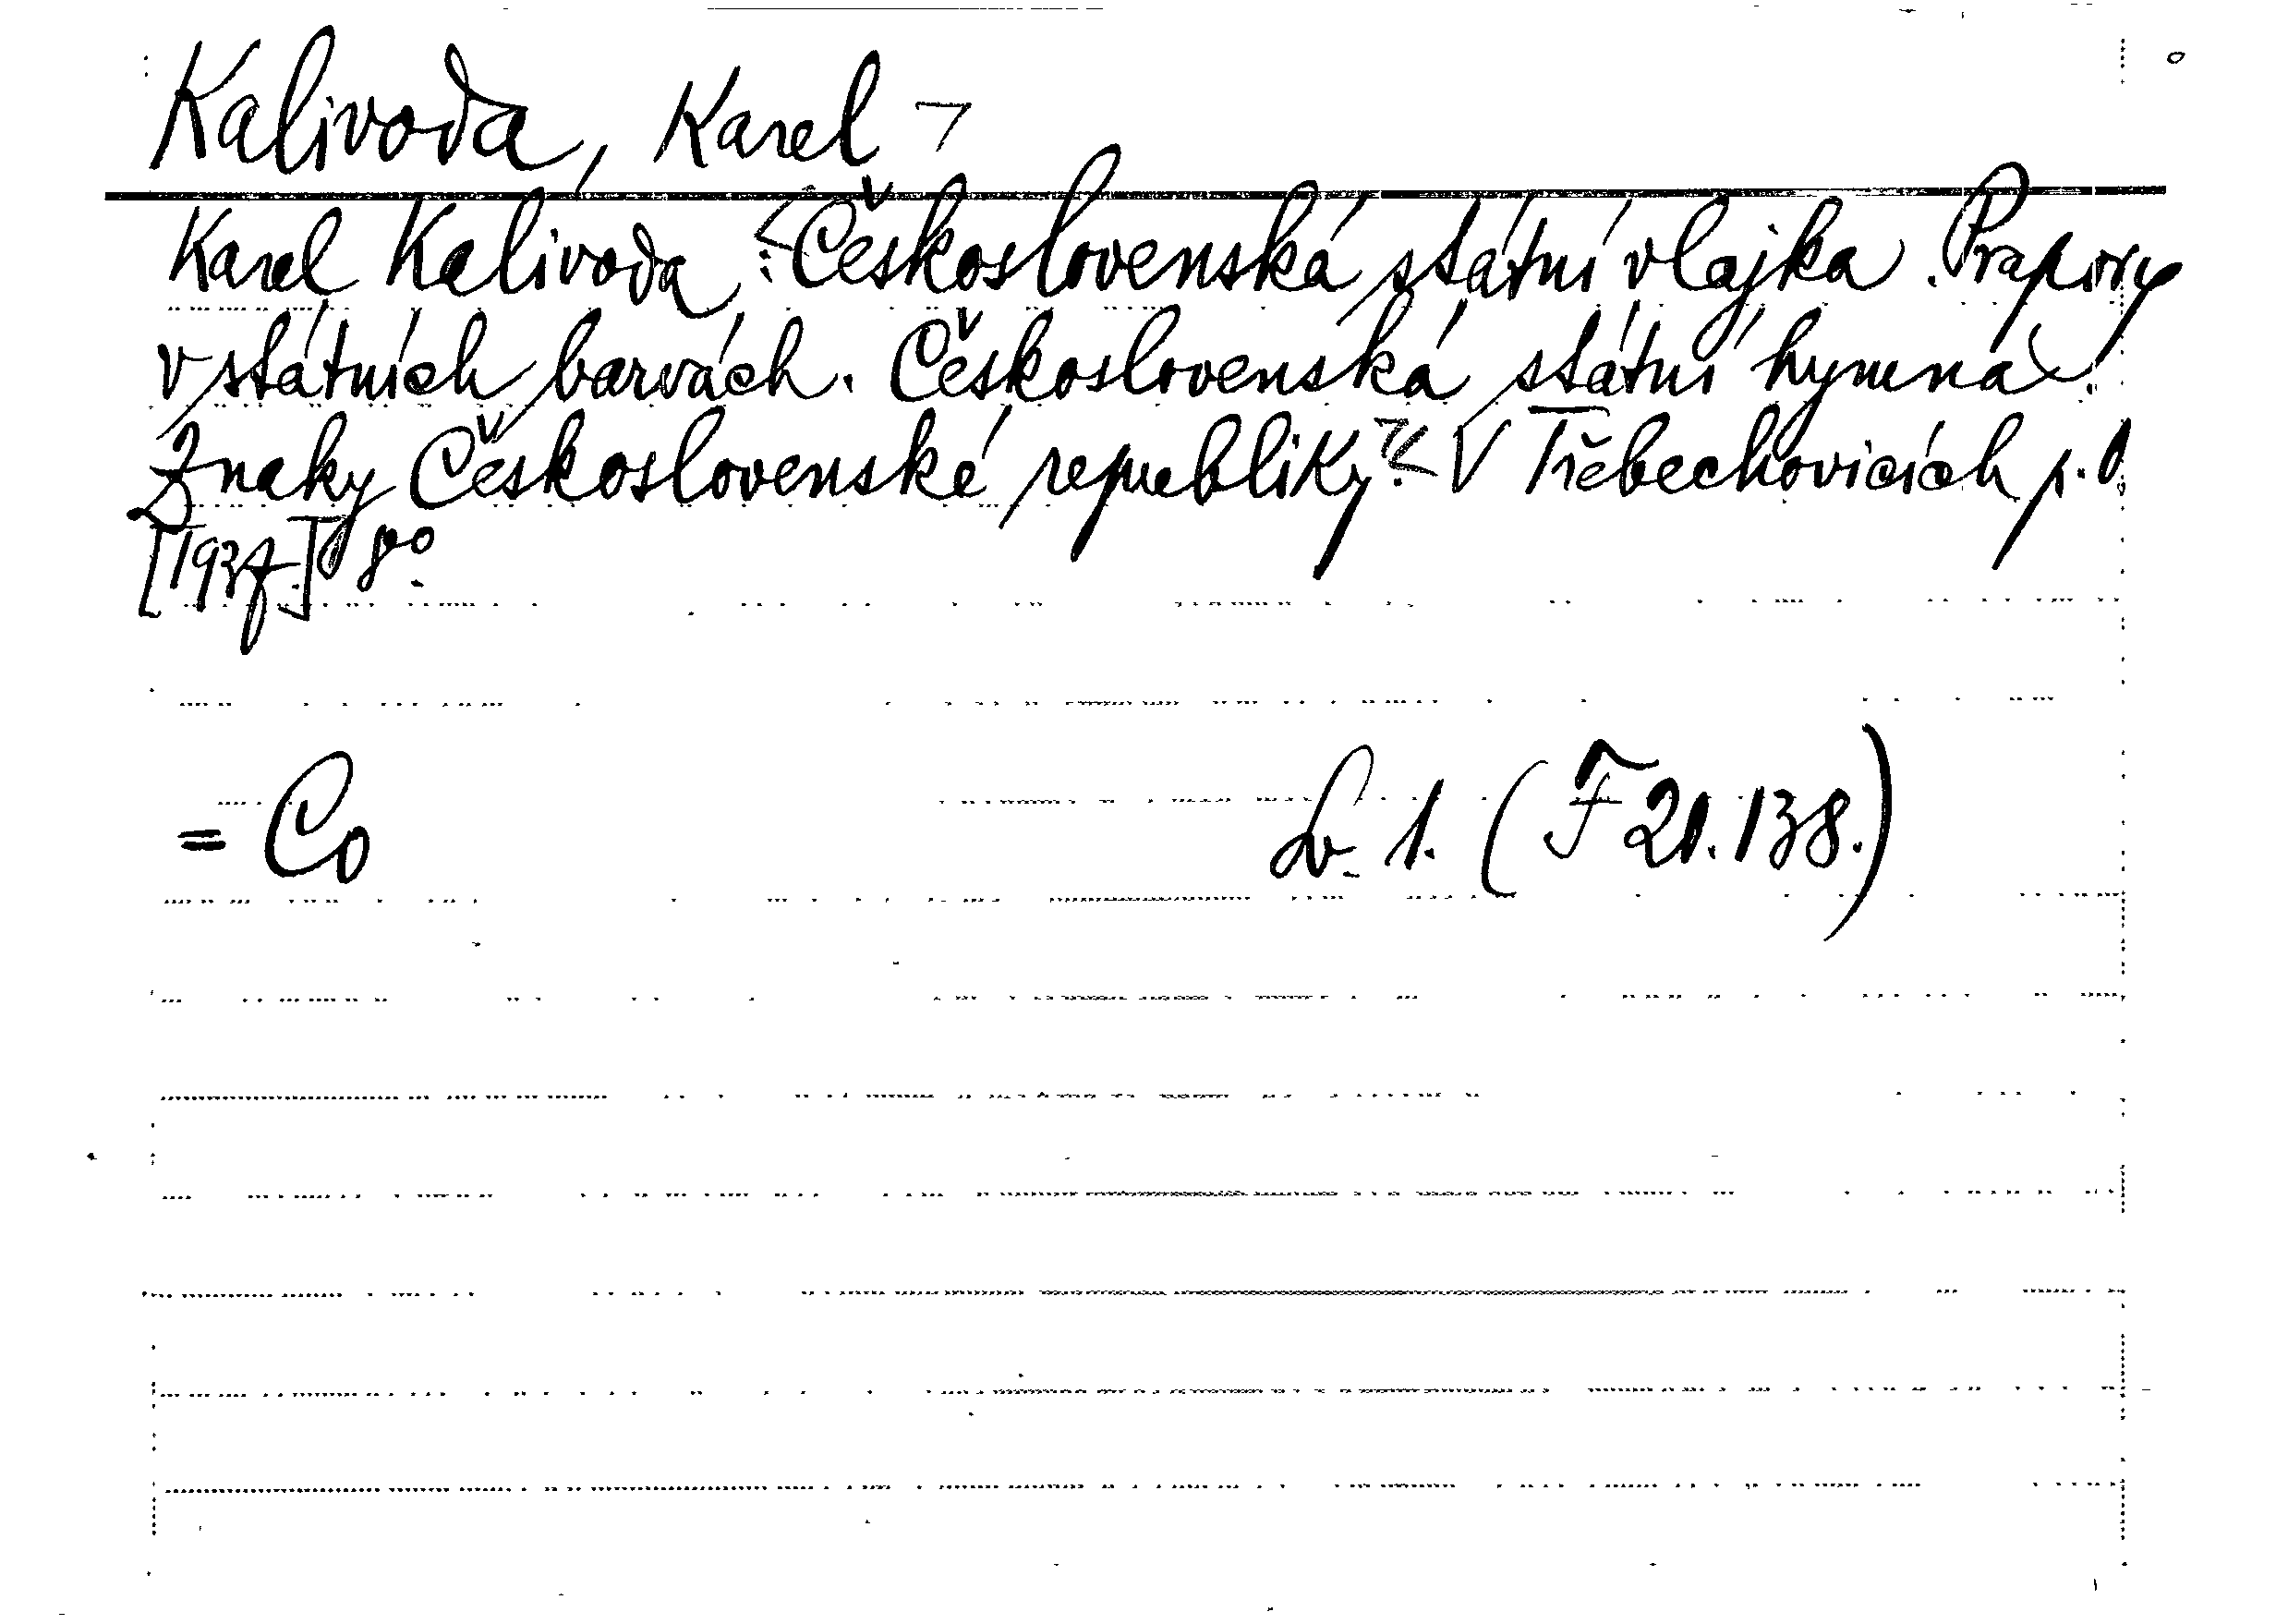 Kalivoda, Karel
Karel Kalivoda: Československá státní vlajka. Prapory
v státních barvách. Československá státní hymna.
Znaky Československé republiky. V Třebechovicích p. O.
[1937.] 8°.
= Co
Sv. 1. (F 21.138.)